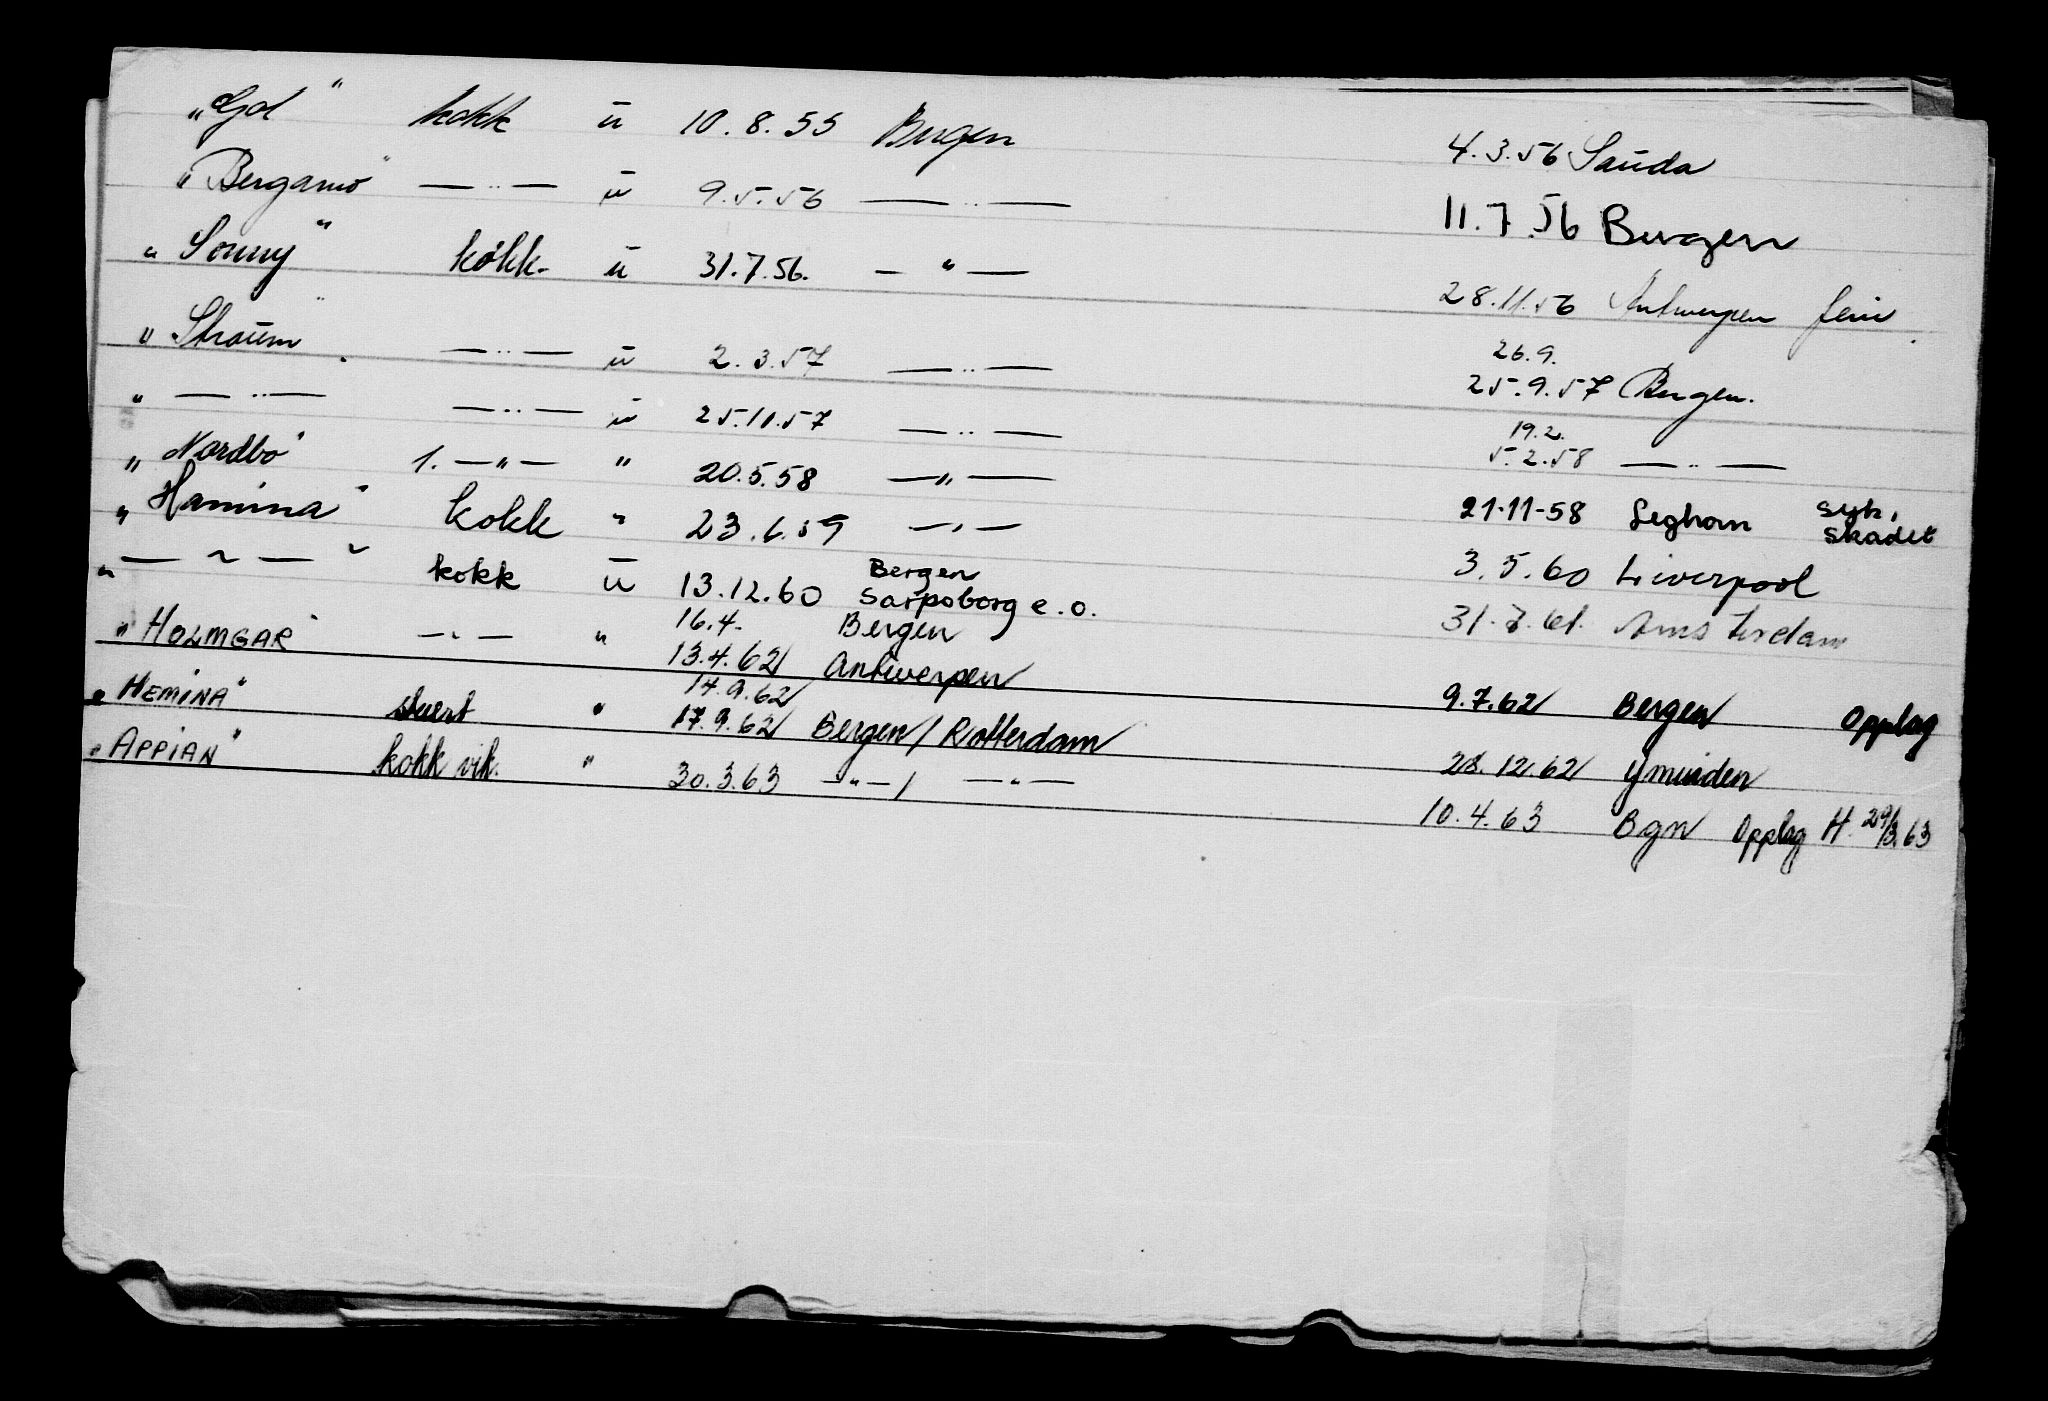 " Gol " kokk u 10.8.55 Bergen 4.3.56 Sauda
" Bergamo " — " — u 9.5.56 — " — 11.7.56 Bergen
" Sonny " kokk. u 31.7.56. — " — 28.11.56 Antwerpen ferie
" Straum " — " — u 2.3.57 — " — 26.9. 25.9.57 Bergen.
" — " — — " — u 25.11.57 — " — 19.2. 5.2.58 — " —
" Nordbo " 1. — " — " 20.5.58 — " — 21-11-58 Leghorn syk, skadet
" Hamina " kokk " 23.6.59 — " — 3.5.60 Liverpool
" — " — " kokk u 13.12.60 Bergen Sarpsborg e.o. 31.7.61. Amsterdam
" HOLMGAR " — " — " 16.4. Bergen 13.4.62 Antwerpen 9.7.62 Bergen Opplag
" HEMINA " stuert " 14.9.62 17.9.62 Bergen / Rotterdam 28.12.62 Ymuiden
" APPIAN " kokk vik. " 30.3.63 — " — / — " — 10.4.63 Bgn Opplag H. 29/3.63